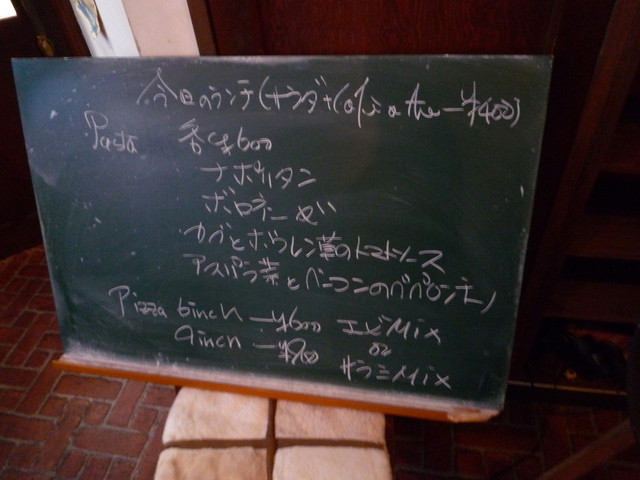 今日のランチ(サラダ+Cof or the —¥400)
Pasta 各¥600
ナポリタン
ボロネーゼ
カブとホウレン草のトマトソース
アスパラ菜とベーコンのペペロンチーノ
Pizza 6inch —¥600 エビMix
or
9inch —¥900 サラミMix